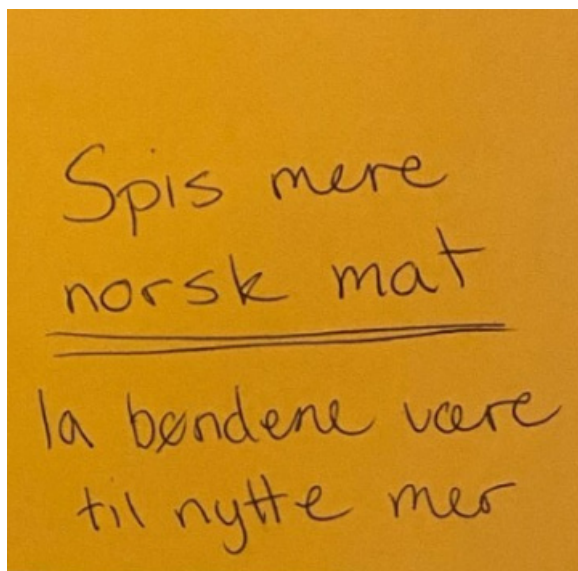 Spis mere
norsk mat
la bøndene være
til nytte mer